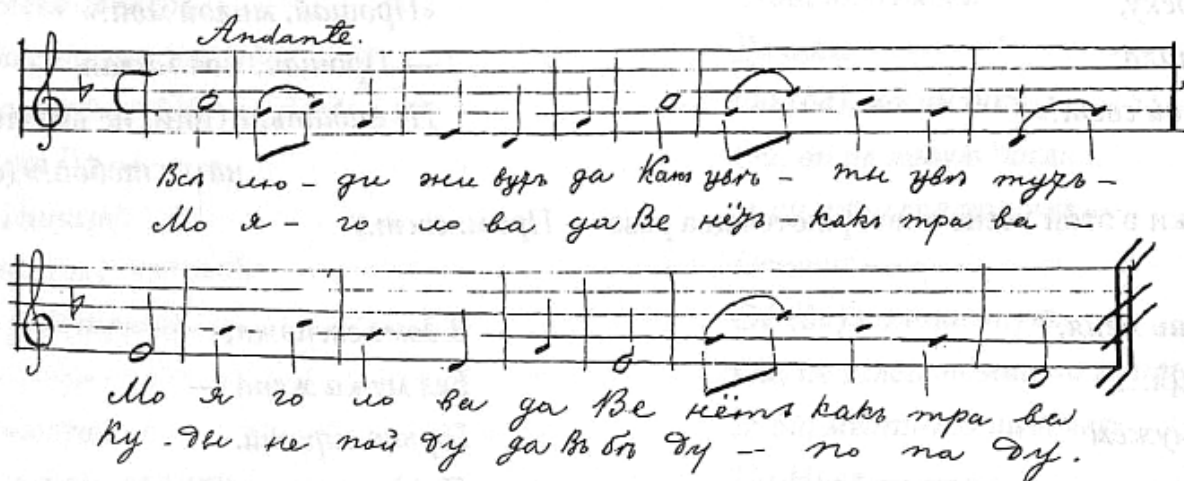 Andante.
Всѣ лю - ди жи вутъ да Какъ цвѣ - ты цвѣ тутъ -
Мо я - го ло ва да Вя нётъ какъ тра ва -
Мо я го ло ва да Вя нётъ какъ тра ва
Ку - ды не пой ду да Въ бѣ ду - по па ду.